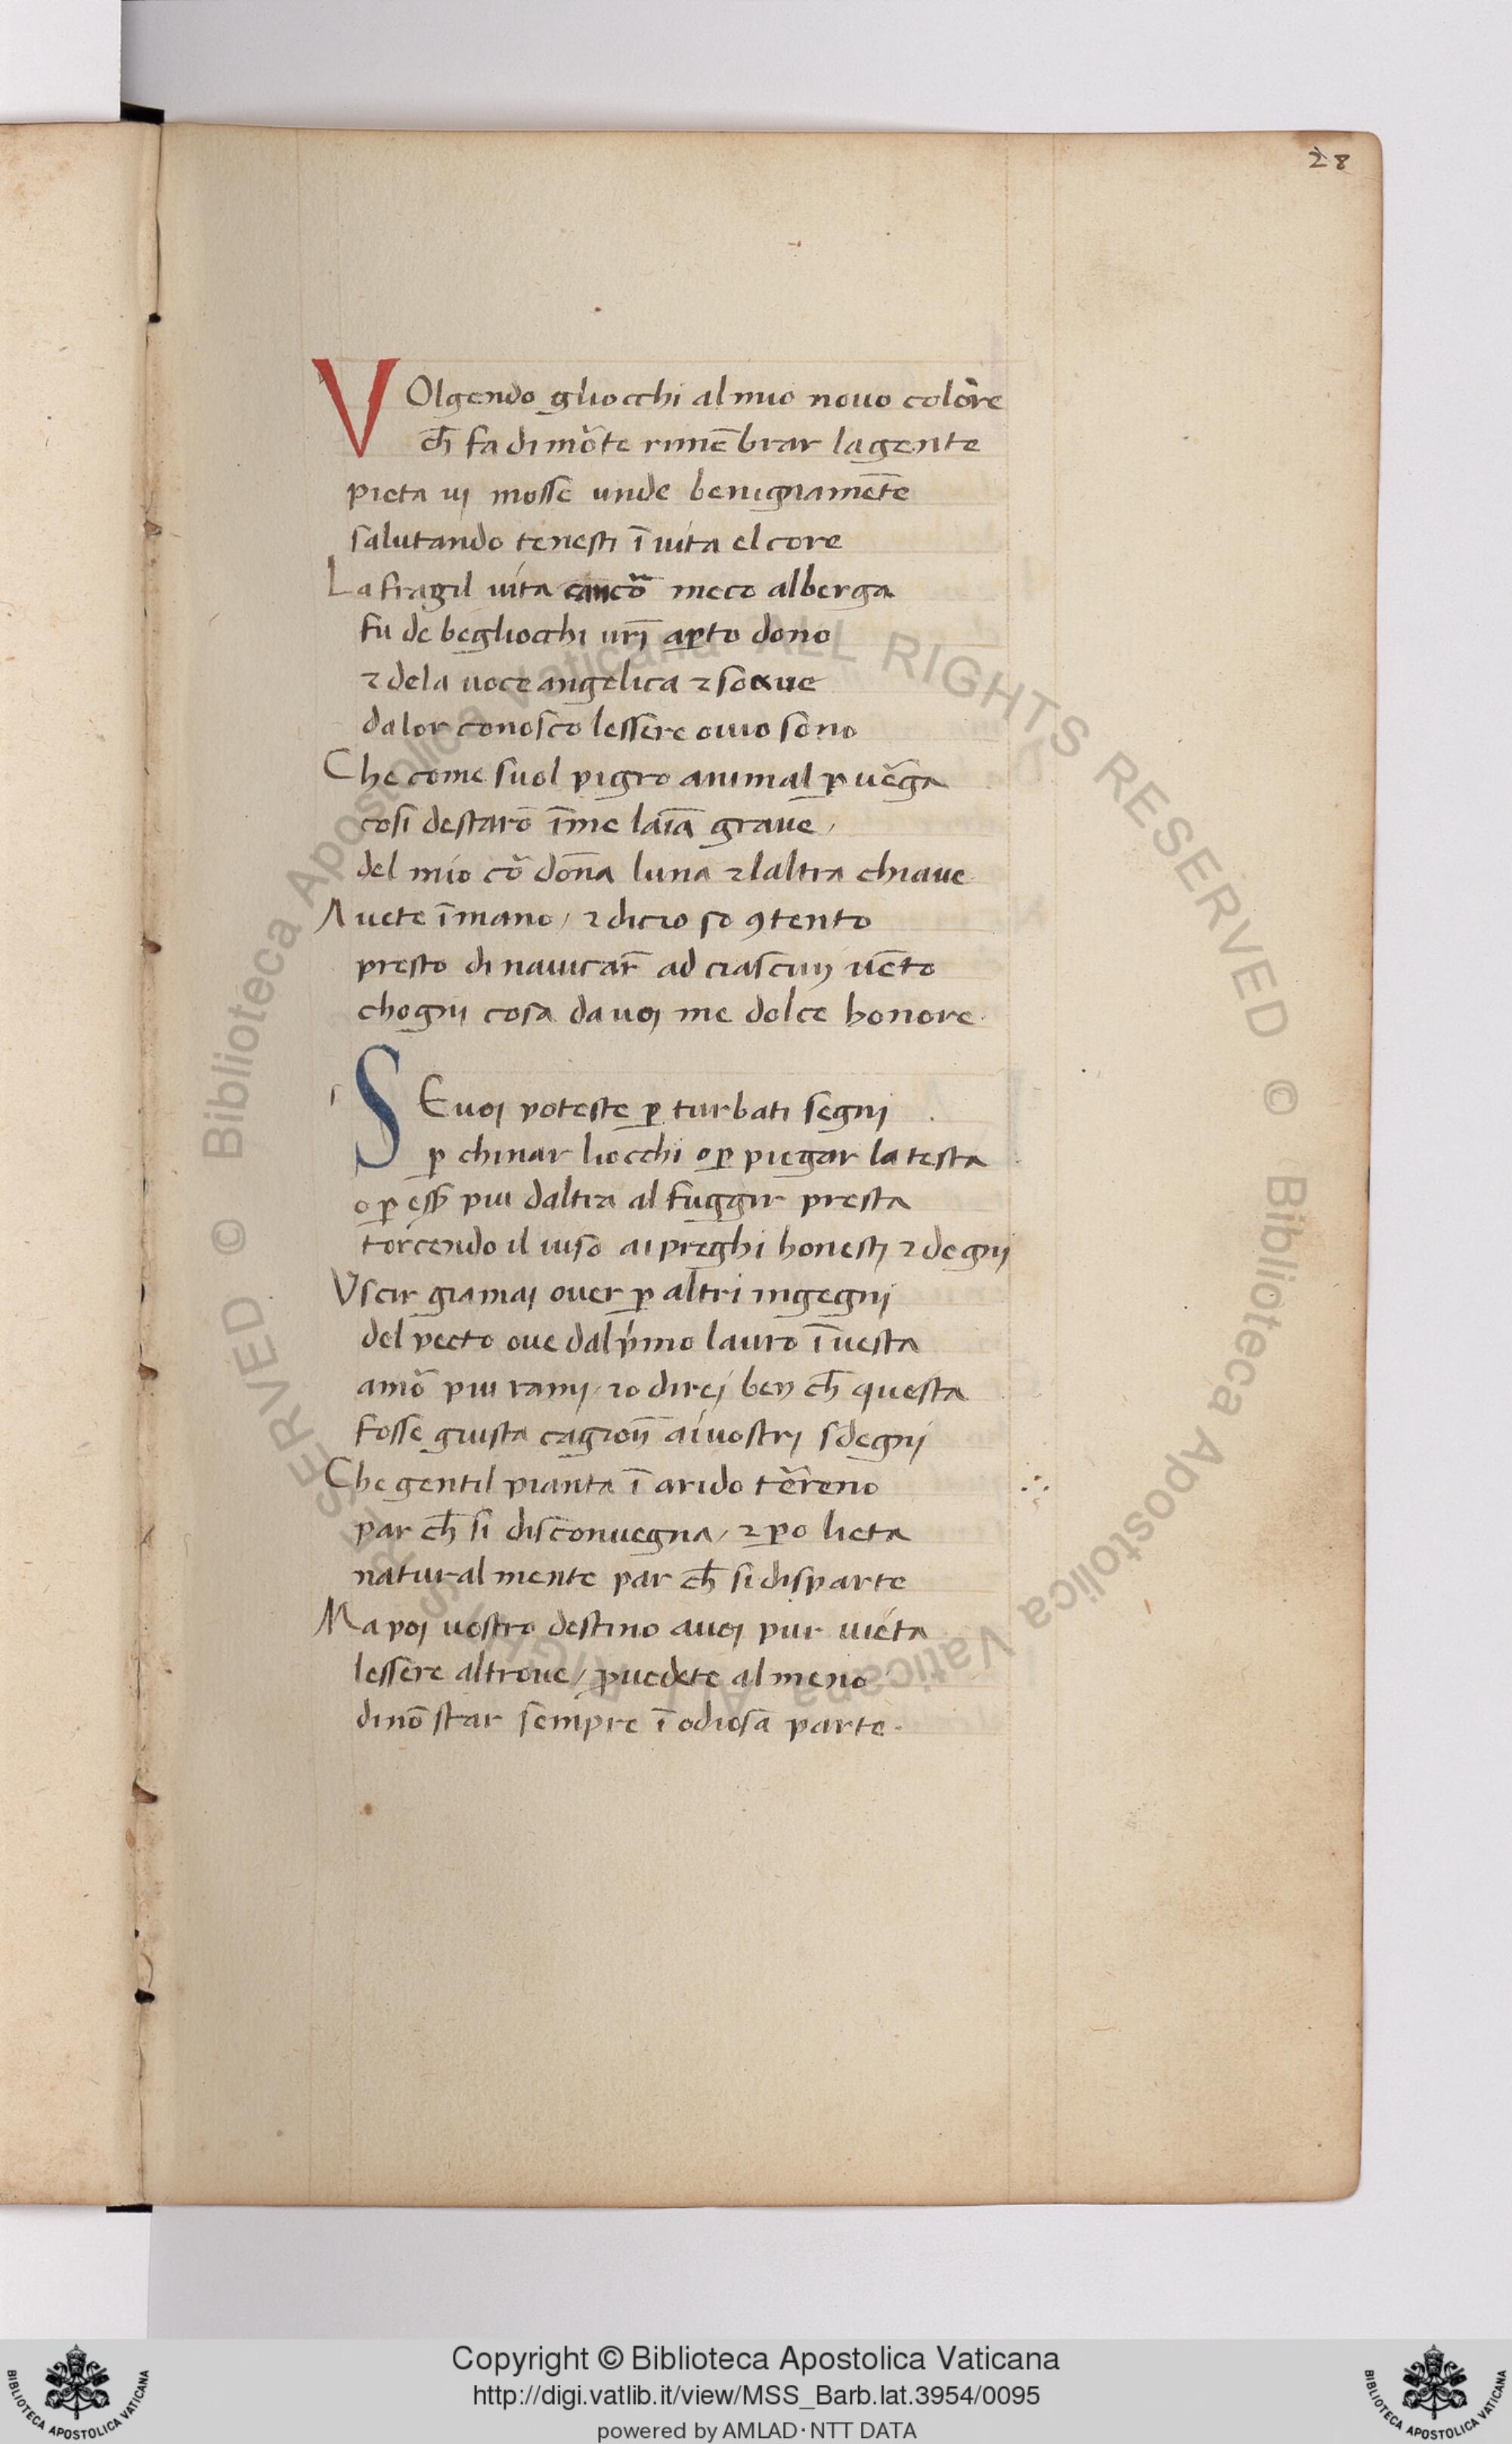 28
VOlgendo gliocchi al mio nouo colore
ch̄ fa di mor̃te rimēbrar lagente
pieta ui mosse unde benignamēte
salutando tenesti ī uita el core
La fragil uita ancõ meco alberga
fu de begliocchi ur̄i aꝑto dono
⁊ dela uoce angelica ⁊ soaue
dalor conosco lessere ouio sono
Che come suol pigro animal ꝑ uẽga
cosi destarō īme laīa graue /
del mio cõ dōna luna ⁊ laltra chiaue
Auete īmano / ⁊ dicio so ꝯtento
presto di nauicar̄ ad ciascun uēto
chogni cosa da uoi me dolce honore.
SEuoi poteste ꝑ turbati segni
ꝑ chinar liocchi oꝑ piegar la testa
oꝑ eẜẜ piu daltra al fuggir presta
torcendo il uiso ai preghi honesti ⁊ degni
Vscir giamai ouer ꝑ altri ingegni
del pecto oue dal pͥmo lauro īnesta
amõ piu rami / io direi ben ch̄ questa
fosse giusta cagion̄ ai uostri sdegni
Che gentil pianta ī arido tẽreno
par ch̄ si disconuegna / ⁊ ꝑo lieta
naturalmente par ch̄ si disparte
Ma poi uostro destino auoi pur uieta
lessere altroue / ꝓuedete almeno
dinō star sempre ī odiosa parte.
© Biblioteca Apostolica Vaticana ALL RIGHTS RESERVED © Biblioteca Apostolica Vaticana ALL RIGHTS RESERVED
Copyright © Biblioteca Apostolica Vaticana
http://digi.vatlib.it/view/MSS_Barb.lat.3954/0095
powered by AMLAD·NTT DATA
BIBLIOTECA APOSTOLICA VATICANA
BIBLIOTECA APOSTOLICA VATICANA